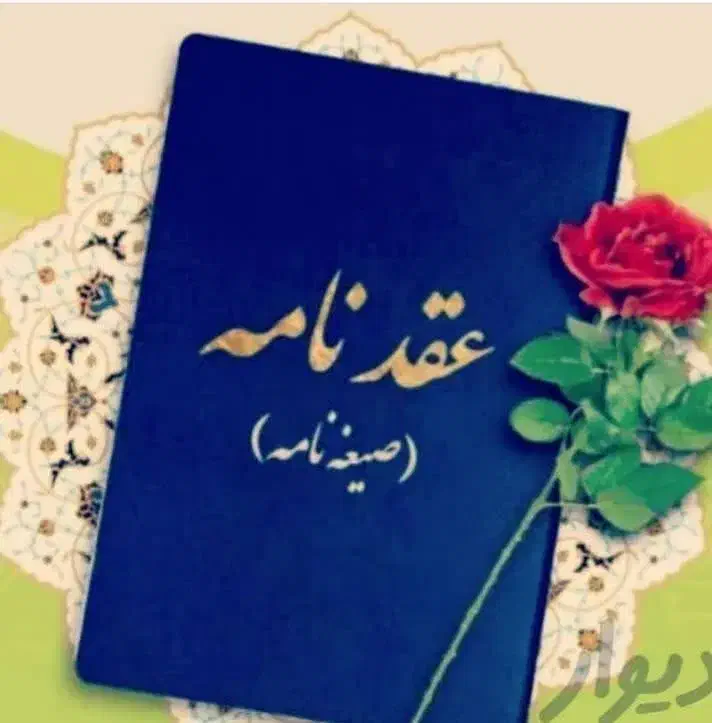 عقد نامه
(صیغه نامه)
دیوار